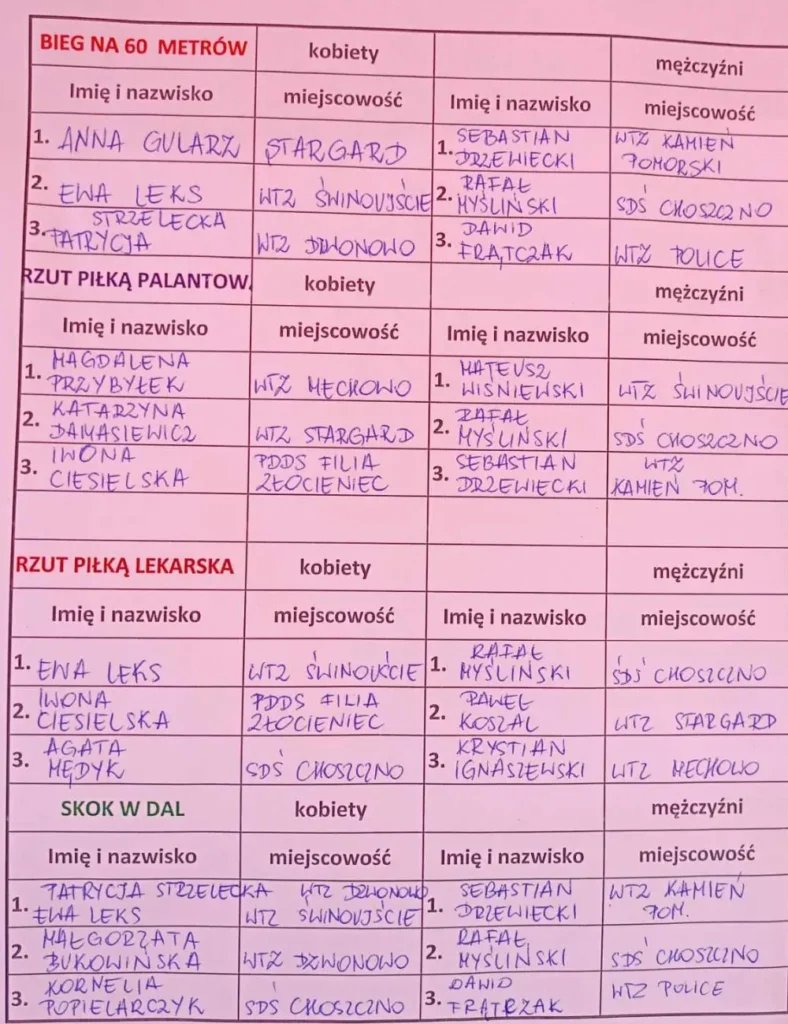 BIEG NA 60 METRÓW kobiety mężczyźni
Imię i nazwisko miejscowość Imię i nazwisko miejscowość
1. ANNA GULARZ STARGARD 1. SEBASTIAN DRZEWIECKI WTZ KAMIEŃ POMORSKI
2. EWA LEKS WTZ ŚWINOUJŚCIE 2. RAFAŁ MYŚLIŃSKI ŚDS CHOSZCZNO
3. PATRYCJA STRZELECKA WTZ DZWONOWO 3. DAWID FRĄTCZAK WTZ POLICE
RZUT PIŁKĄ PALANTOW. kobiety mężczyźni
Imię i nazwisko miejscowość Imię i nazwisko miejscowość
1. MAGDALENA PRZYBYŁEK WTZ MECHOWO 1. MATEUSZ WIŚNIEWSKI WTZ ŚWINOUJŚCIE
2. KATARZYNA DAMASIEWICZ WTZ STARGARD 2. RAFAŁ MYŚLIŃSKI ŚDS CHOSZCZNO
3. IWONA CIESIELSKA PDDS FILIA ZŁOCIENIEC 3. SEBASTIAN DRZEWIECKI WTZ KAMIEŃ POM.
RZUT PIŁKĄ LEKARSKA kobiety mężczyźni
Imię i nazwisko miejscowość Imię i nazwisko miejscowość
1. EWA LEKS WTZ 1. RAFAŁ MYŚLIŃSKI ŚDS CHOSZCZNO
2. IWONA CIESIELSKA PDDS FILIA ZŁOCIENIEC 2. PAWEŁ KOSZAL WTZ STARGARD
3. AGATA MĘDYK ŚDS CHOSZCZNO 3. KRYSTIAN IGNASZEWSKI WTZ MECHOWO
SKOK W DAL kobiety mężczyźni
Imię i nazwisko miejscowość Imię i nazwisko miejscowość
1. PATRYCJA STRZELECKA WTZ DZWONOWO EWA LEKS WTZ ŚWINOUJŚCIE 1. SEBASTIAN DRZEWIECKI WTZ KAMIEŃ POM.
2. MAŁGORZATA BUKOWIŃSKA WTZ DZWONOWO 2. RAFAŁ MYŚLIŃSKI ŚDS CHOSZCZNO
3. KORNELIA POPIELARCZYK ŚDS CHOSZCZNO 3. DAWID FRĄTRZAK WTZ POLICE